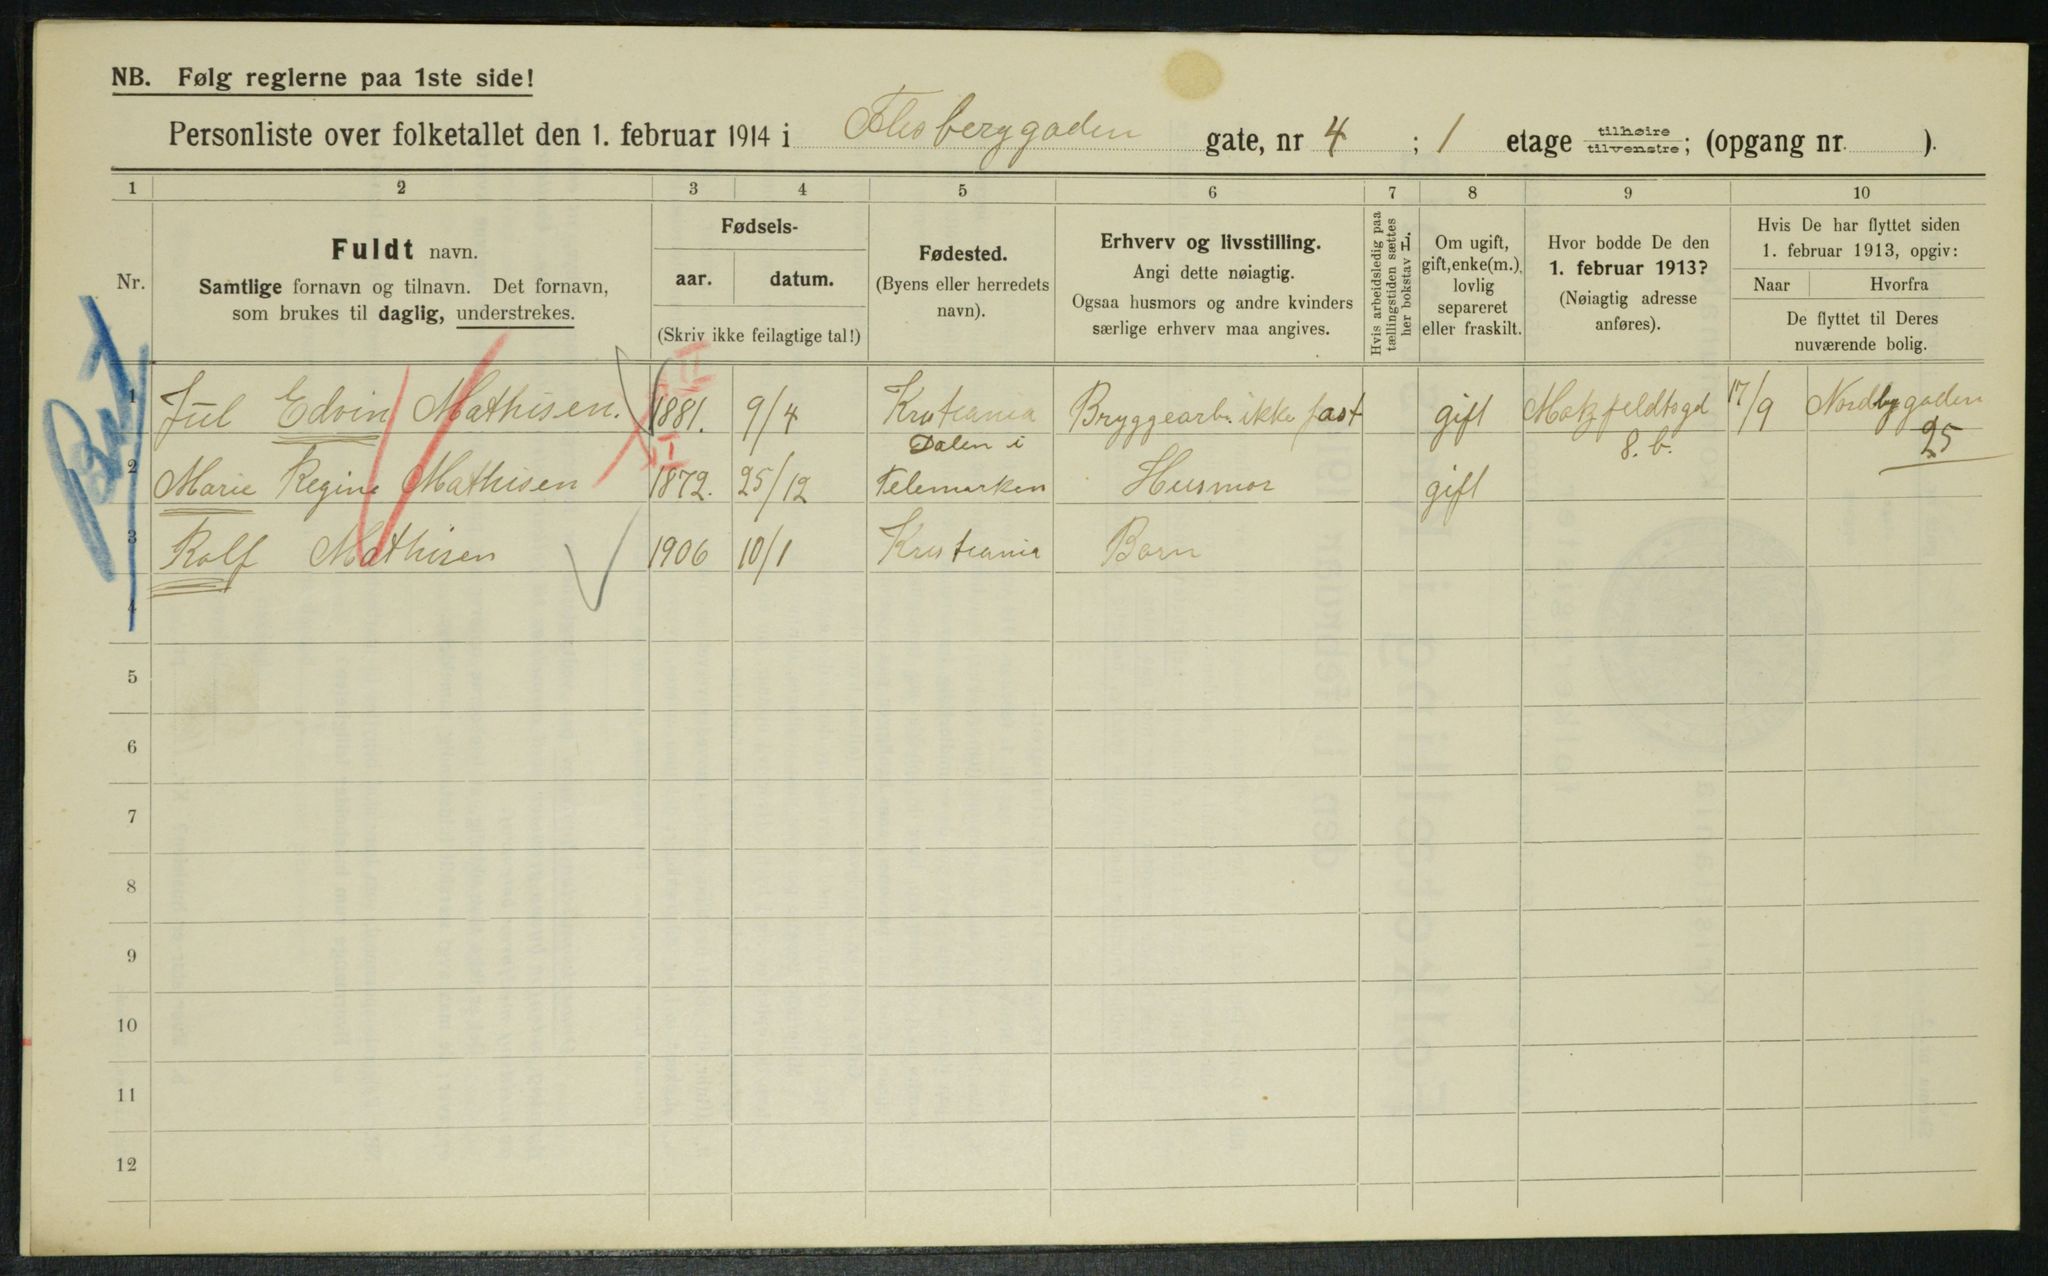 NB. Følg reglerne paa 1ste side!
Personliste over folketallet den 1. februar 1914 i Flesberggaden gate, nr 4 ; 1 etage tilhøire tilvenstre; (opgang nr. ).
1 2 3 4 5 6 7 8 9 10
Nr.
Fuldt navn.
Samtlige fornavn og tilnavn. Det fornavn,
som brukes til daglig, understrekes.
Fødsels-
aar. datum.
(Skriv ikke feilagtige tal!)
Fødested.
(Byens eller herredets
navn).
Erhverv og livsstilling.
Angi dette nøiagtig.
Ogsaa husmors og andre kvinders
særlige erhverv maa angives.
Hvis arbeidsledig paa
tællingstiden sættes
her bokstav L.
Om ugift,
gift, enke(m.),
lovlig
separeret
eller fraskilt.
Hvor bodde De den
1. februar 1913?
(Nøiagtig adresse
anføres).
Hvis De har flyttet siden
1. februar 1913, opgiv:
Naar Hvorfra
De flyttet til Deres
nuværende bolig.
II
1 Jul Edvin Mathisen. 1881. 9/4 Kristiania Bryggearb. ikke fast gift Motzfeldtsgd 8. b. 17/9 Nordbygaden 25
I
2 Marie Regine Mathisen 1872. 25/12 Dalen i Telemarken Husmor gift
3 Rolf Mathisen 1906 10/1 Kristiania Barn
4
5
6
7
8
9
10
11
12